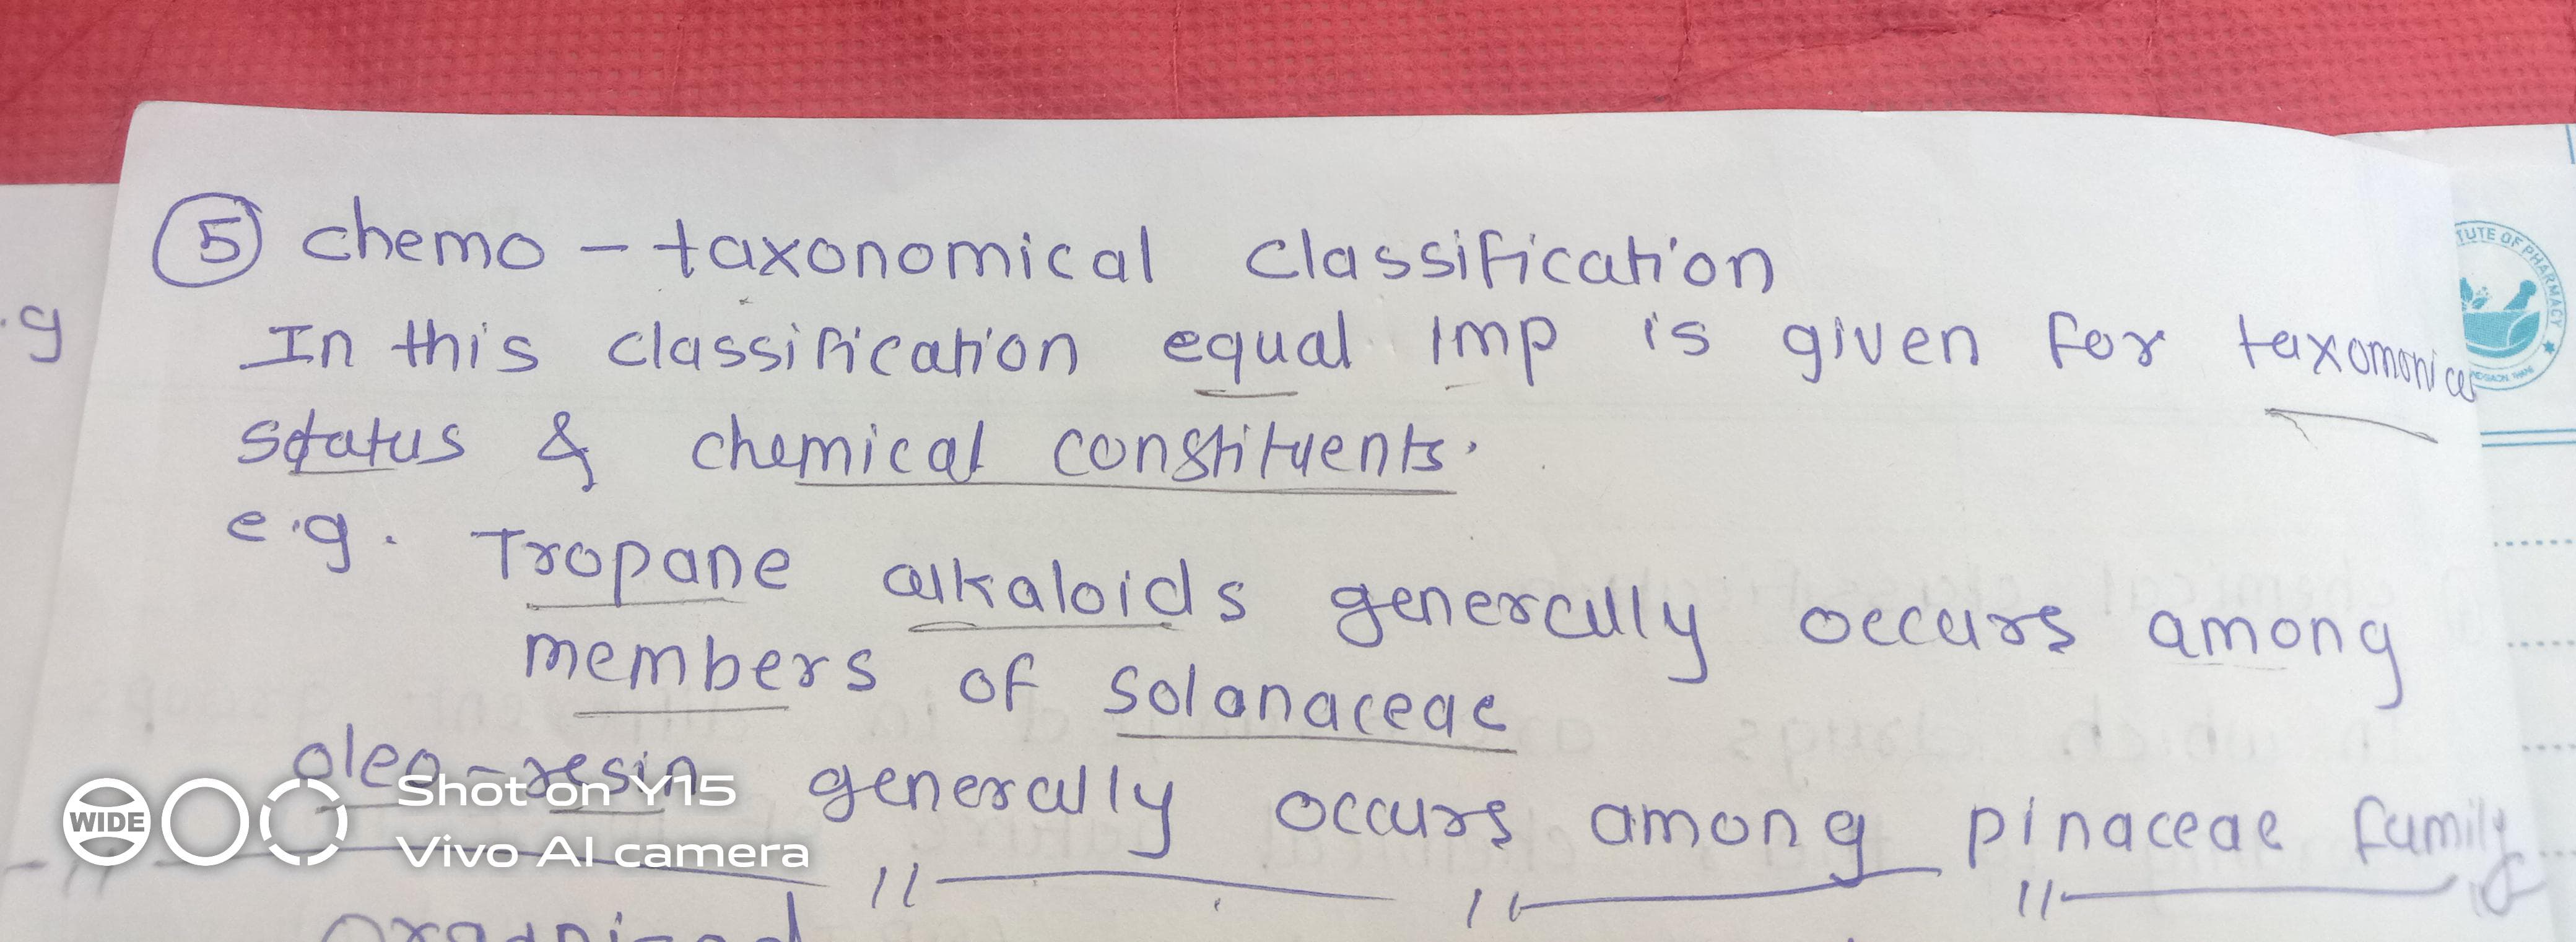 .g
⑤ chemo - taxonomical classification
In this classification equal Imp is given for taxomonical
status & chemical constituents.
e.g. Tropane alkaloids generally occurs among
members of solanaceae
oleo-resin generally occurs among pinaceae family
organized
TUTE OF PHARMACY
WIDE
Shot on Y15
Vivo AI camera